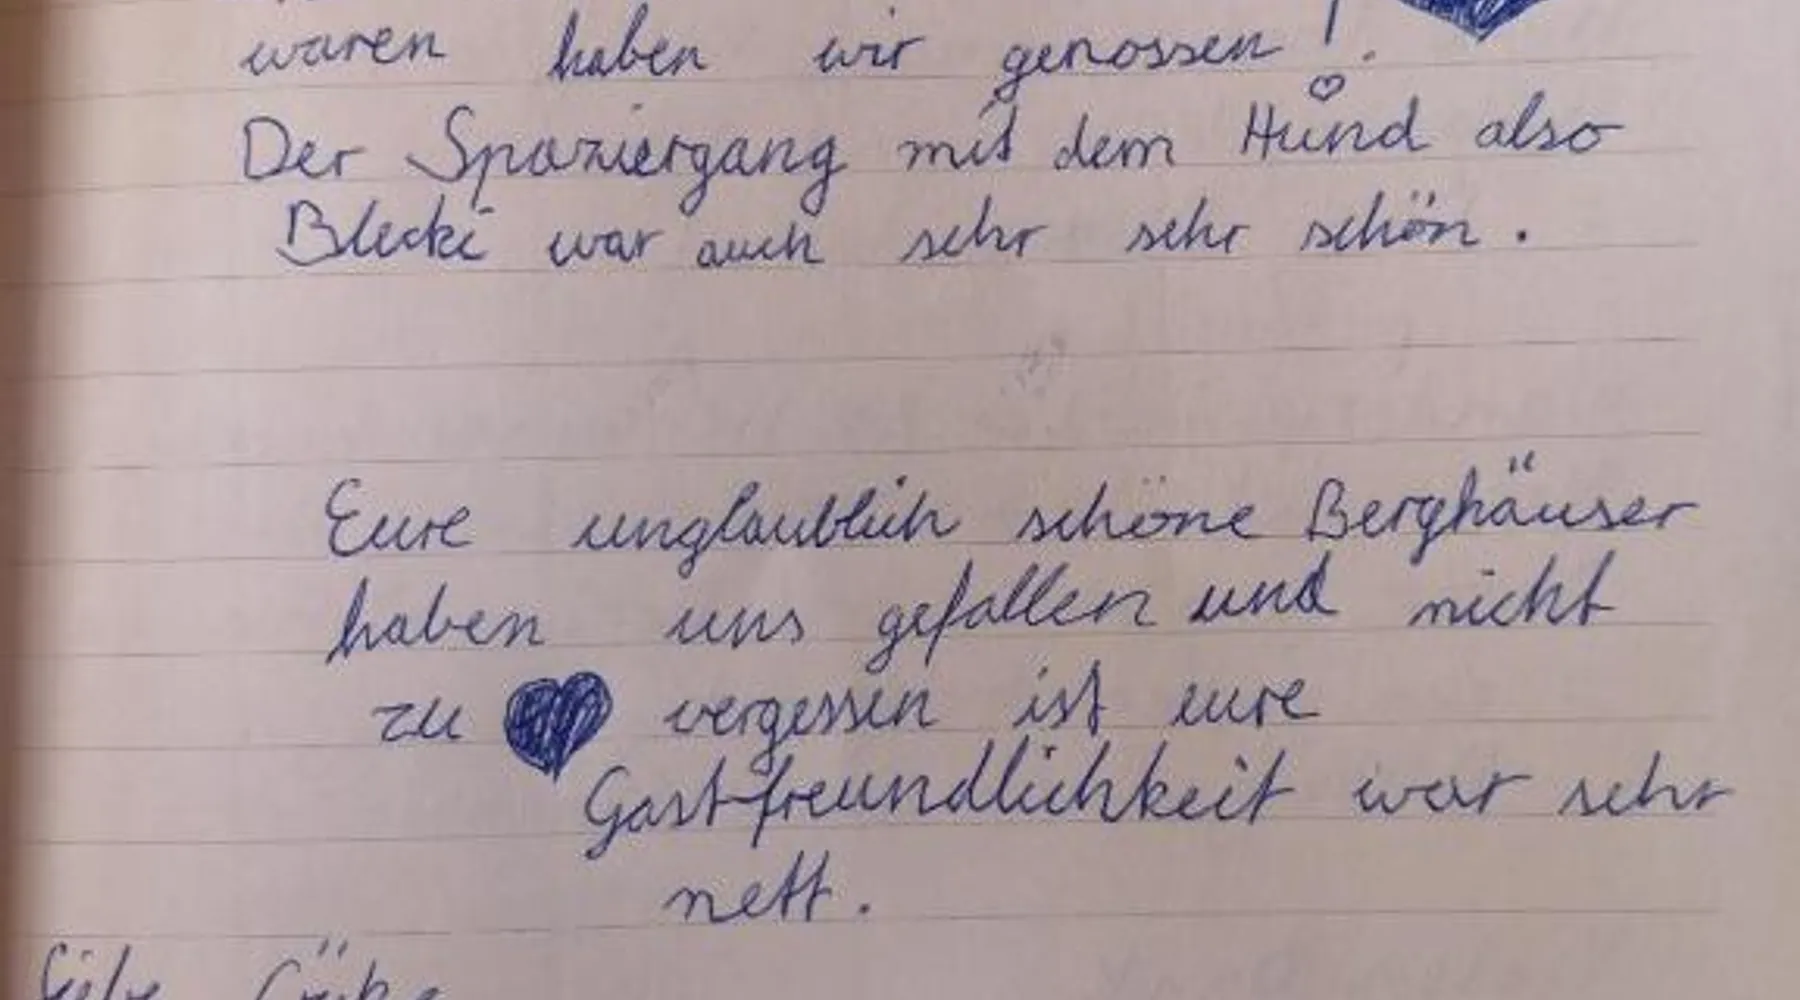 waren haben wir genossen!
Der Spaziergang mit dem Hund also
Blecki war auch sehr sehr schön.
Eure unglaublich schöne Berghäuser
haben uns gefallen und nicht
zu vergessen ist eure
Gastfreundlichkeit war sehr
nett.